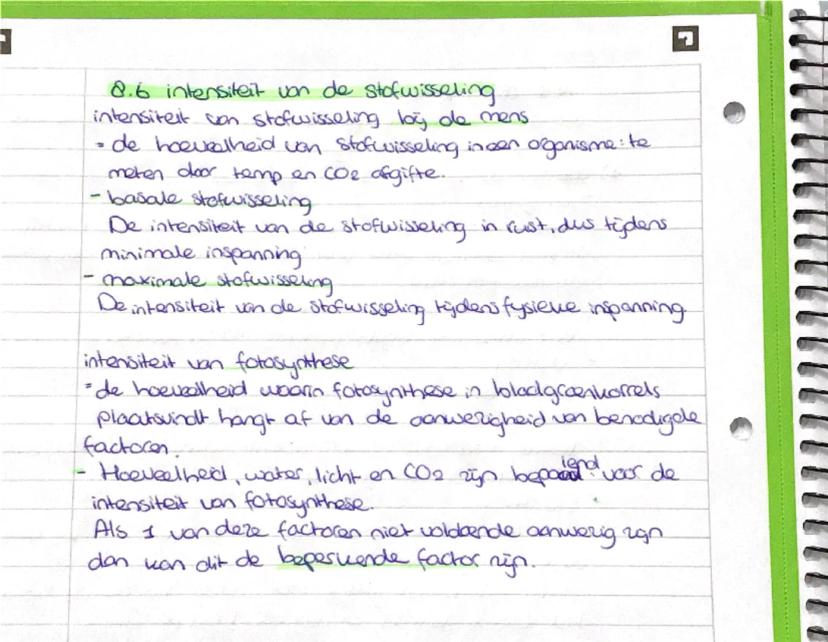 8.6 intensiteit van de stofwisseling
intensiteit van stofwisseling bij de mens
= de hoeveelheid van stofwisseling in een organisme: te
meten door temp en CO2 afgifte.
- basale stofwisseling
De intensiteit van de stofwisseling in rust, dus tijdens
minimale inspanning
- maximale stofwisseling
De intensiteit van de stofwisseling tijdens fysieke inspanning
intensiteit van fotosynthese
= de hoeveelheid waarin fotosynthese in bladgroenkorrels
plaatsvindt hangt af van de aanwezigheid van benodigde
factoren.
- Hoeveelheid, water, licht en CO2 zijn bepalend voor de
intensiteit van fotosynthese.
Als 1 van deze factoren niet voldoende aanwezig zijn
dan kan dit de beperkende factor zijn.